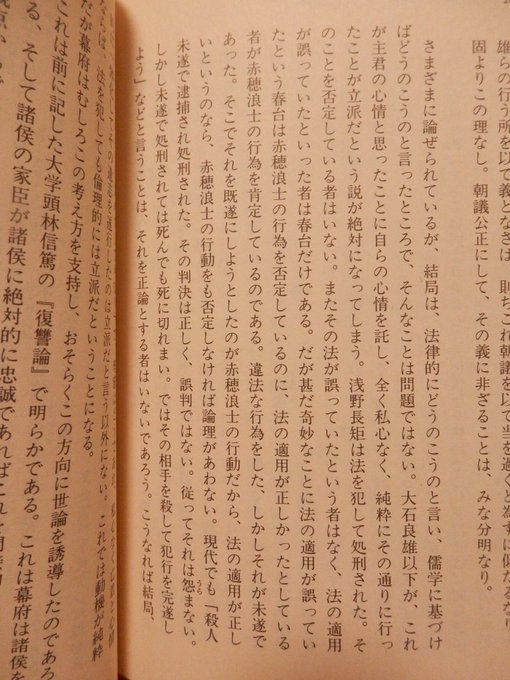 雄らの行う所を以て義となさば、則ちこれ朝議を以て当を過ぐと為すに似たるなり
固よりこの理なし。朝議公正にして、その義に非ざることは、みな分明なり。
さまざまに論ぜられているが、結局は、法律的にどうのこうのと言い、儒学に基づけ
ばどうのこうのと言ったところで、そんなことは問題ではない。大石良雄以下が、これ
が主君の心情と思ったことに自らの心情を託し、全く私心なく、純粋にその通りに行っ
たことが立派だという説が絶対になってしまう。浅野長矩は法を犯して処刑された。そ
のことを否定している者はいない。またその法が誤っていたという者はなく、法の適用
が誤っていたといった者は春台だけである。だが甚だ奇妙なことに法の適用が誤ってい
たという春台は赤穂浪士の行為を否定しているのに、法の適用が正しかったとしている
者が赤穂浪士の行為を肯定しているのである。違法な行為をした、しかしそれが未遂で
あった。そこでそれを既遂にしようとしたのが赤穂浪士の行動だから、法の適用が正し
いというのなら、赤穂浪士の行動をも否定しなければ論理があわない。現代でも「殺人
未遂で逮捕され処刑された。その判決は正しく、誤判ではない。従ってそれは怨まない。
うら
しかし未遂で処刑されては死んでも死に切れまい。ではその相手を殺して犯行を完遂し
よう」などと言うことは、それを正論とする者はいないであろう。こうなれば結局、
を遂行したのは立派だと言う以外にない。これでは動機が純粋
ならば、法を犯しても倫理的には立派だということになる。
だが幕府はむしろこの考え方を支持し、おそらくこの方向に世論を誘導したのであろ
これは前に記した大学頭林信篤の『復讐論』で明らかである。これは幕府は諸侯を
る、そして諸侯の家臣が諸侯に絶対的に忠誠であればこれを